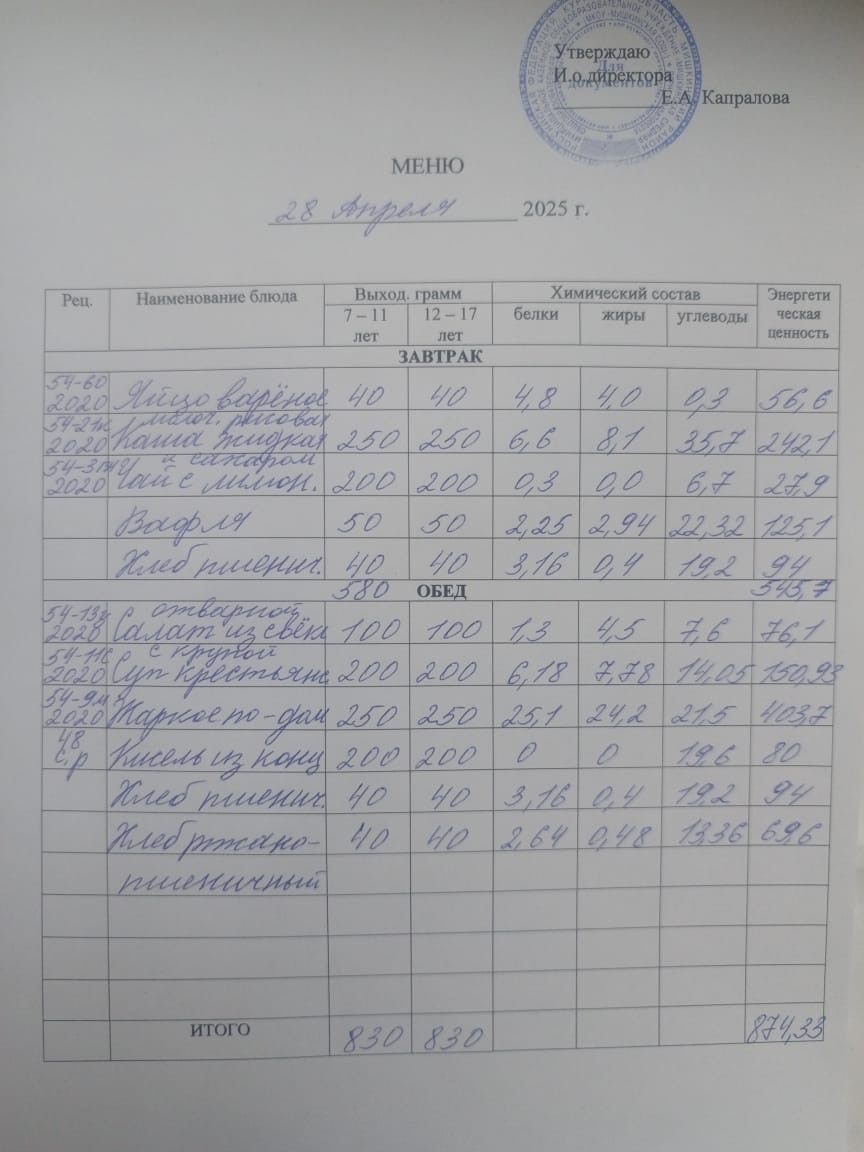 Утверждаю
И.о.директора
Для документов
Е.А. Капралова
МЕНЮ
28 Апреля 2025 г.
Рец. Наименование блюда Выход. грамм Химический состав Энергети ческая ценность
7 – 11 лет 12 – 17 лет белки жиры углеводы
ЗАВТРАК
54-6о 2020 Яйцо варёное 40 40 4,8 4,0 0,3 56,6
2020 Каша жидкая молоч. рисовая 250 250 6,6 8,1 35,7 242,1
2020 Чай с лимон. и сахаром 200 200 0,3 0,0 6,7 27,9
Вафля 50 50 2,25 2,94 22,32 125,1
Хлеб пшенич. 40 40 3,16 0,4 19,2 94
580 ОБЕД 545,7
54-13з 2020 Салат из свёкл отварной 100 100 1,3 4,5 7,6 76,1
54-11с 2020 Суп крестьянс. с крупой 200 200 6,18 7,78 14,05 150,93
54-9м 2020 Жаркое по-дом 250 250 25,1 24,2 21,5 403,7
48 с.р Кисель из конц 200 200 0 0 19,6 80
Хлеб пшенич. 40 40 3,16 0,4 19,2 94
Хлеб ржано- 40 40 2,64 0,48 13,36 69,6
пшеничный
ИТОГО 830 830 874,33